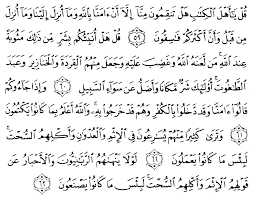 قُلْ يَٰٓأَهْلَ ٱلْكِتَٰبِ هَلْ تَنقِمُونَ مِنَّآ إِلَّآ أَنْ ءَامَنَّا بِٱللَّهِ وَمَآ أُنزِلَ إِلَيْنَا وَمَآ أُنزِلَ
مِن قَبْلُ وَأَنَّ أَكْثَرَكُمْ فَٰسِقُونَ ٥٩ قُلْ هَلْ أُنَبِّئُكُم بِشَرٍّ مِّن ذَٰلِكَ مَثُوبَةً
عِندَ ٱللَّهِ مَن لَّعَنَهُ ٱللَّهُ وَغَضِبَ عَلَيْهِ وَجَعَلَ مِنْهُمُ ٱلْقِرَدَةَ وَٱلْخَنَازِيرَ وَعَبَدَ
ٱلطَّٰغُوتَ أُو۟لَٰٓئِكَ شَرٌّ مَّكَانًا وَأَضَلُّ عَن سَوَآءِ ٱلسَّبِيلِ ٦٠ وَإِذَا جَآءُوكُمْ
قَالُوٓا۟ ءَامَنَّا وَقَد دَّخَلُوا۟ بِٱلْكُفْرِ وَهُمْ قَدْ خَرَجُوا۟ بِهِۦ وَٱللَّهُ أَعْلَمُ بِمَا كَانُوا۟ يَكْتُمُونَ
٦١ وَتَرَىٰ كَثِيرًا مِّنْهُمْ يُسَٰرِعُونَ فِى ٱلْإِثْمِ وَٱلْعُدْوَٰنِ وَأَكْلِهِمُ ٱلسُّحْتَ
لَبِئْسَ مَا كَانُوا۟ يَعْمَلُونَ ٦٢ لَوْلَا يَنْهَىٰهُمُ ٱلرَّبَّٰنِيُّونَ وَٱلْأَحْبَارُ عَن
قَوْلِهِمُ ٱلْإِثْمَ وَأَكْلِهِمُ ٱلسُّحْتَ لَبِئْسَ مَا كَانُوا۟ يَصْنَعُونَ ٦٣